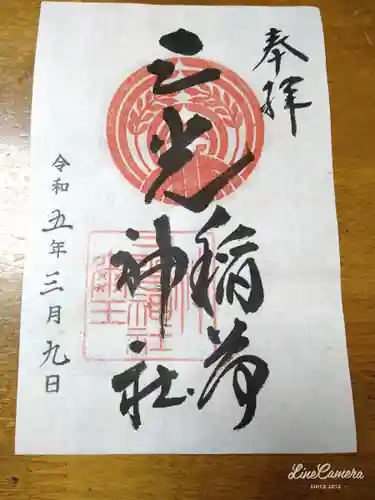 奉拝
三光稲荷
神社
令和五年三月九日
LineCamera
SINCE 2012